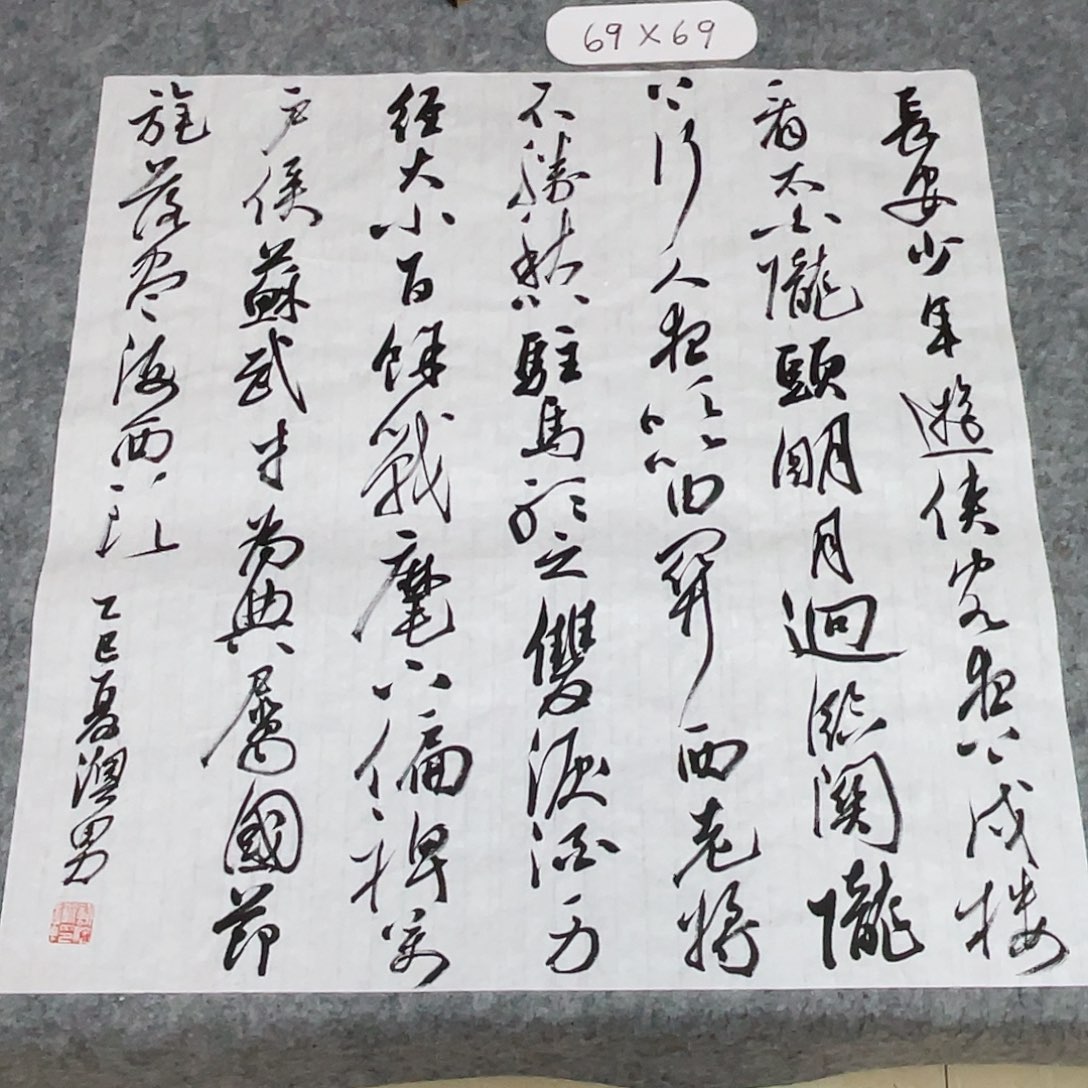 69×69
長安少年遊俠客夜上戍樓
看太白隴頭明月逈臨關隴
上行人夜吹笛關西老將
不勝愁駐馬聽之雙淚流身
經大小百餘戰麾下偏裨萬
户侯蘇武才為典屬國節
旄落盡海西頭
乙巳夏澳男